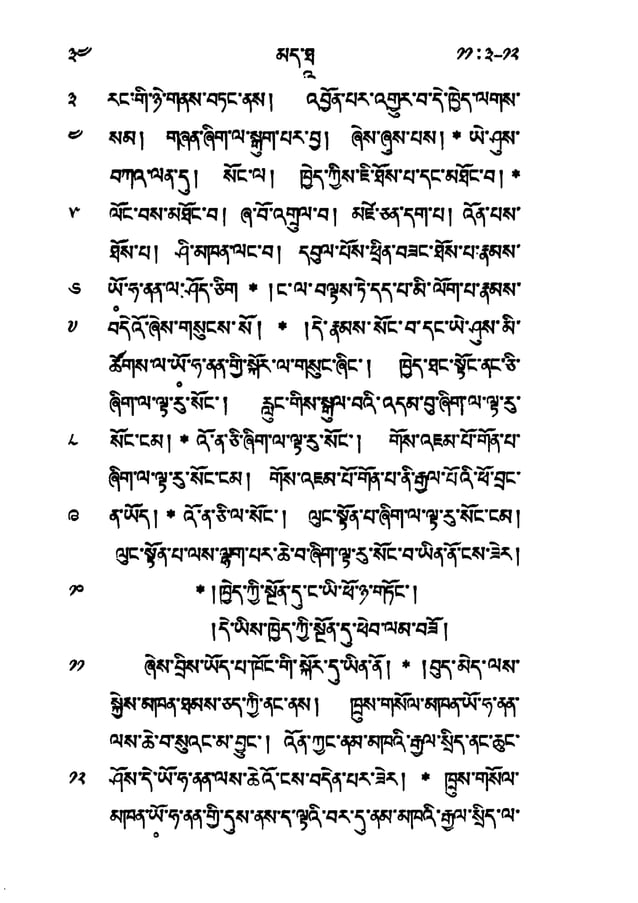 ༣༤ མད་ཐཱ ༡༡ : ༣-༡༢
༣ རང་གི་ཉེ་གནས་བཏང་ནས། འབྱོན་པར་འགྱུར་བ་དེ་ཁྱེད་ལགས་
༤ སམ། གཞན་ཞིག་ལ་སྒུག་པར་བྱ། ཞེས་ཞུས་པས། * ཡེ་ཤུས་
བཀའ་ལན་དུ། སོང་ལ། ཁྱེད་ཀྱིས་ཇི་ཐོས་པ་དང་མཐོང་བ། *
༥ ལོང་བས་མཐོང་བ། ཞ་བོ་འགྲུལ་བ། མཛེ་ཅན་དག་པ། འོན་པས་
ཐོས་པ། ཤི་མཁན་ལང་བ། དབུལ་པོས་ཕྲིན་བཟང་ཐོས་པ་རྣམས་
༦ ཡོ༹་ཧ་ནན་ལ་ཤོད་ཅིག * །ང་ལ་བལྟས་ཏེ་དད་པ་མི་ལོག་པ་རྣམས་
༧ བདེའོ་ཞེས་གསུངས་སོ། * །དེ་རྣམས་སོང་བ་དང་ཡེ་ཤུས་མི་
ཚོགས་ལ་ཡོ་ཧ་ནན་གྱི་སྐོར་ལ་གསུང་ཞིང་། ཁྱེད་ཐང་སྟོང་ནང་ཅི་
ཞིག་ལ་ལྟ་རུ་སོང་། རླུང་གིས་སྒུལ་བའི་འདམ་བུ་ཞིག་ལ་ལྟ་རུ་
༨ སོང་ངམ། * འོ་ན་ཅི་ཞིག་ལ་ལྟ་རུ་སོང་། གོས་འཇམ་པོ་གོན་པ་
ཞིག་ལ་ལྟ་རུ་སོང་ངམ། གོས་འཇམ་པོ་གོན་པ་ནི་རྒྱལ་པོའི་ཕོ་བྲང་
༩ ན་ཡོད། * འོ་ན་ཅི་ལ་སོང་། ལུང་སྟོན་པ་ཞིག་ལ་ལྟ་རུ་སོང་ངམ།
ལུང་སྟོན་པ་ལས་ལྷག་པར་ཆེ་བ་ཞིག་ལྟ་རུ་སོང་བ་ཡིན་ནོ་ངས་ཟེར།
༡༠ * །ཁྱེད་ཀྱི་སྔོན་དུ་ང་ཡི་ཕོ་ཉ་གཏོང་།
།དེ་ཡིས་ཁྱེད་ཀྱི་སྔོན་དུ་ཕེབ་ལམ་བཟོ།
༡༡ ཞེས་བྲིས་ཡོད་པ་ཁོང་གི་སྐོར་དུ་ཡིན་ནོ། * །བུད་མེད་ལས་
སྐྱེས་མཁན་ཐམས་ཅད་ཀྱི་ནང་ནས། ཁྲུས་གསོལ་མཁན་ཡོ་ཧ་ནན་
ལས་ཆེ་བ་སུའང་མ་བྱུང་། འོན་ཀྱང་ནམ་མཁའི་རྒྱལ་སྲིད་ནང་ཆུང་
༡༢ ཤོས་དེ་ཡོ་ཧ་ནན་ལས་ཆེའོ་ངས་བདེན་པར་ཟེར། * ཁྲུས་གསོལ་
མཁན་ཡོ་ཧ་ནན་གྱི་དུས་ནས་ད་ལྟའི་བར་དུ་ནམ་མཁའི་རྒྱལ་སྲིད་ལ་